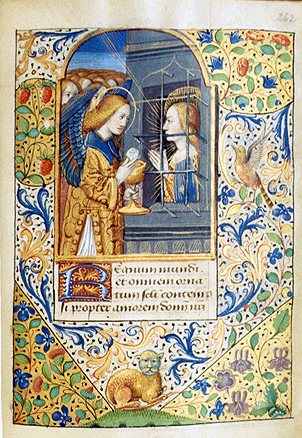 Regnum mundi.
et omnem orna
tum seli contemp
si propter amorem domini